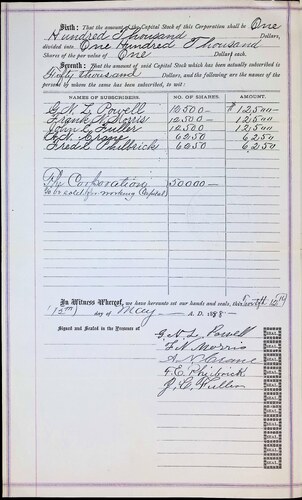 Sixth: That the amount of the Capital Stock of this Corporation shall be One
Hundred Thousand Dollars,
divided into One Hundred Thousand
Shares of the par value of One Dollar each.
Seventh: That the amount of said Capital Stock which has been actually subscribed is
Sixty thousand Dollars, and the following are the names of the
persons by whom the same has been subscribed, to wit:
NAMES OF SUBSCRIBERS. NO. OF SHARES. AMOUNT.
G. N. L. Powell 12500— $ 12500—
Frank N. Morris 12500— 12500
John C. Fuller 12500 12500
Crane 6250 6250
Fred C. Philbrick 6250 6250
The Corporation 50000—
to be sold for working Capital
In Witness Whereof, we have hereunto set our hands and seals, this 12th
12th day of May A. D. 188
Signed and Sealed in the Presence of
G. N. L. Powell SEAL
F. N. Morris SEAL
Crane SEAL
F. C. Philbrick SEAL
J. C. Fuller SEAL